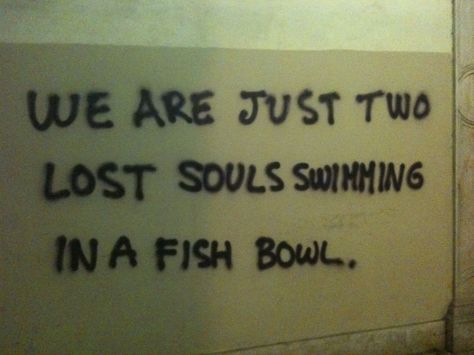 WE ARE JUST TWO
LOST SOULS SWIMMING
IN A FISH BOWL.